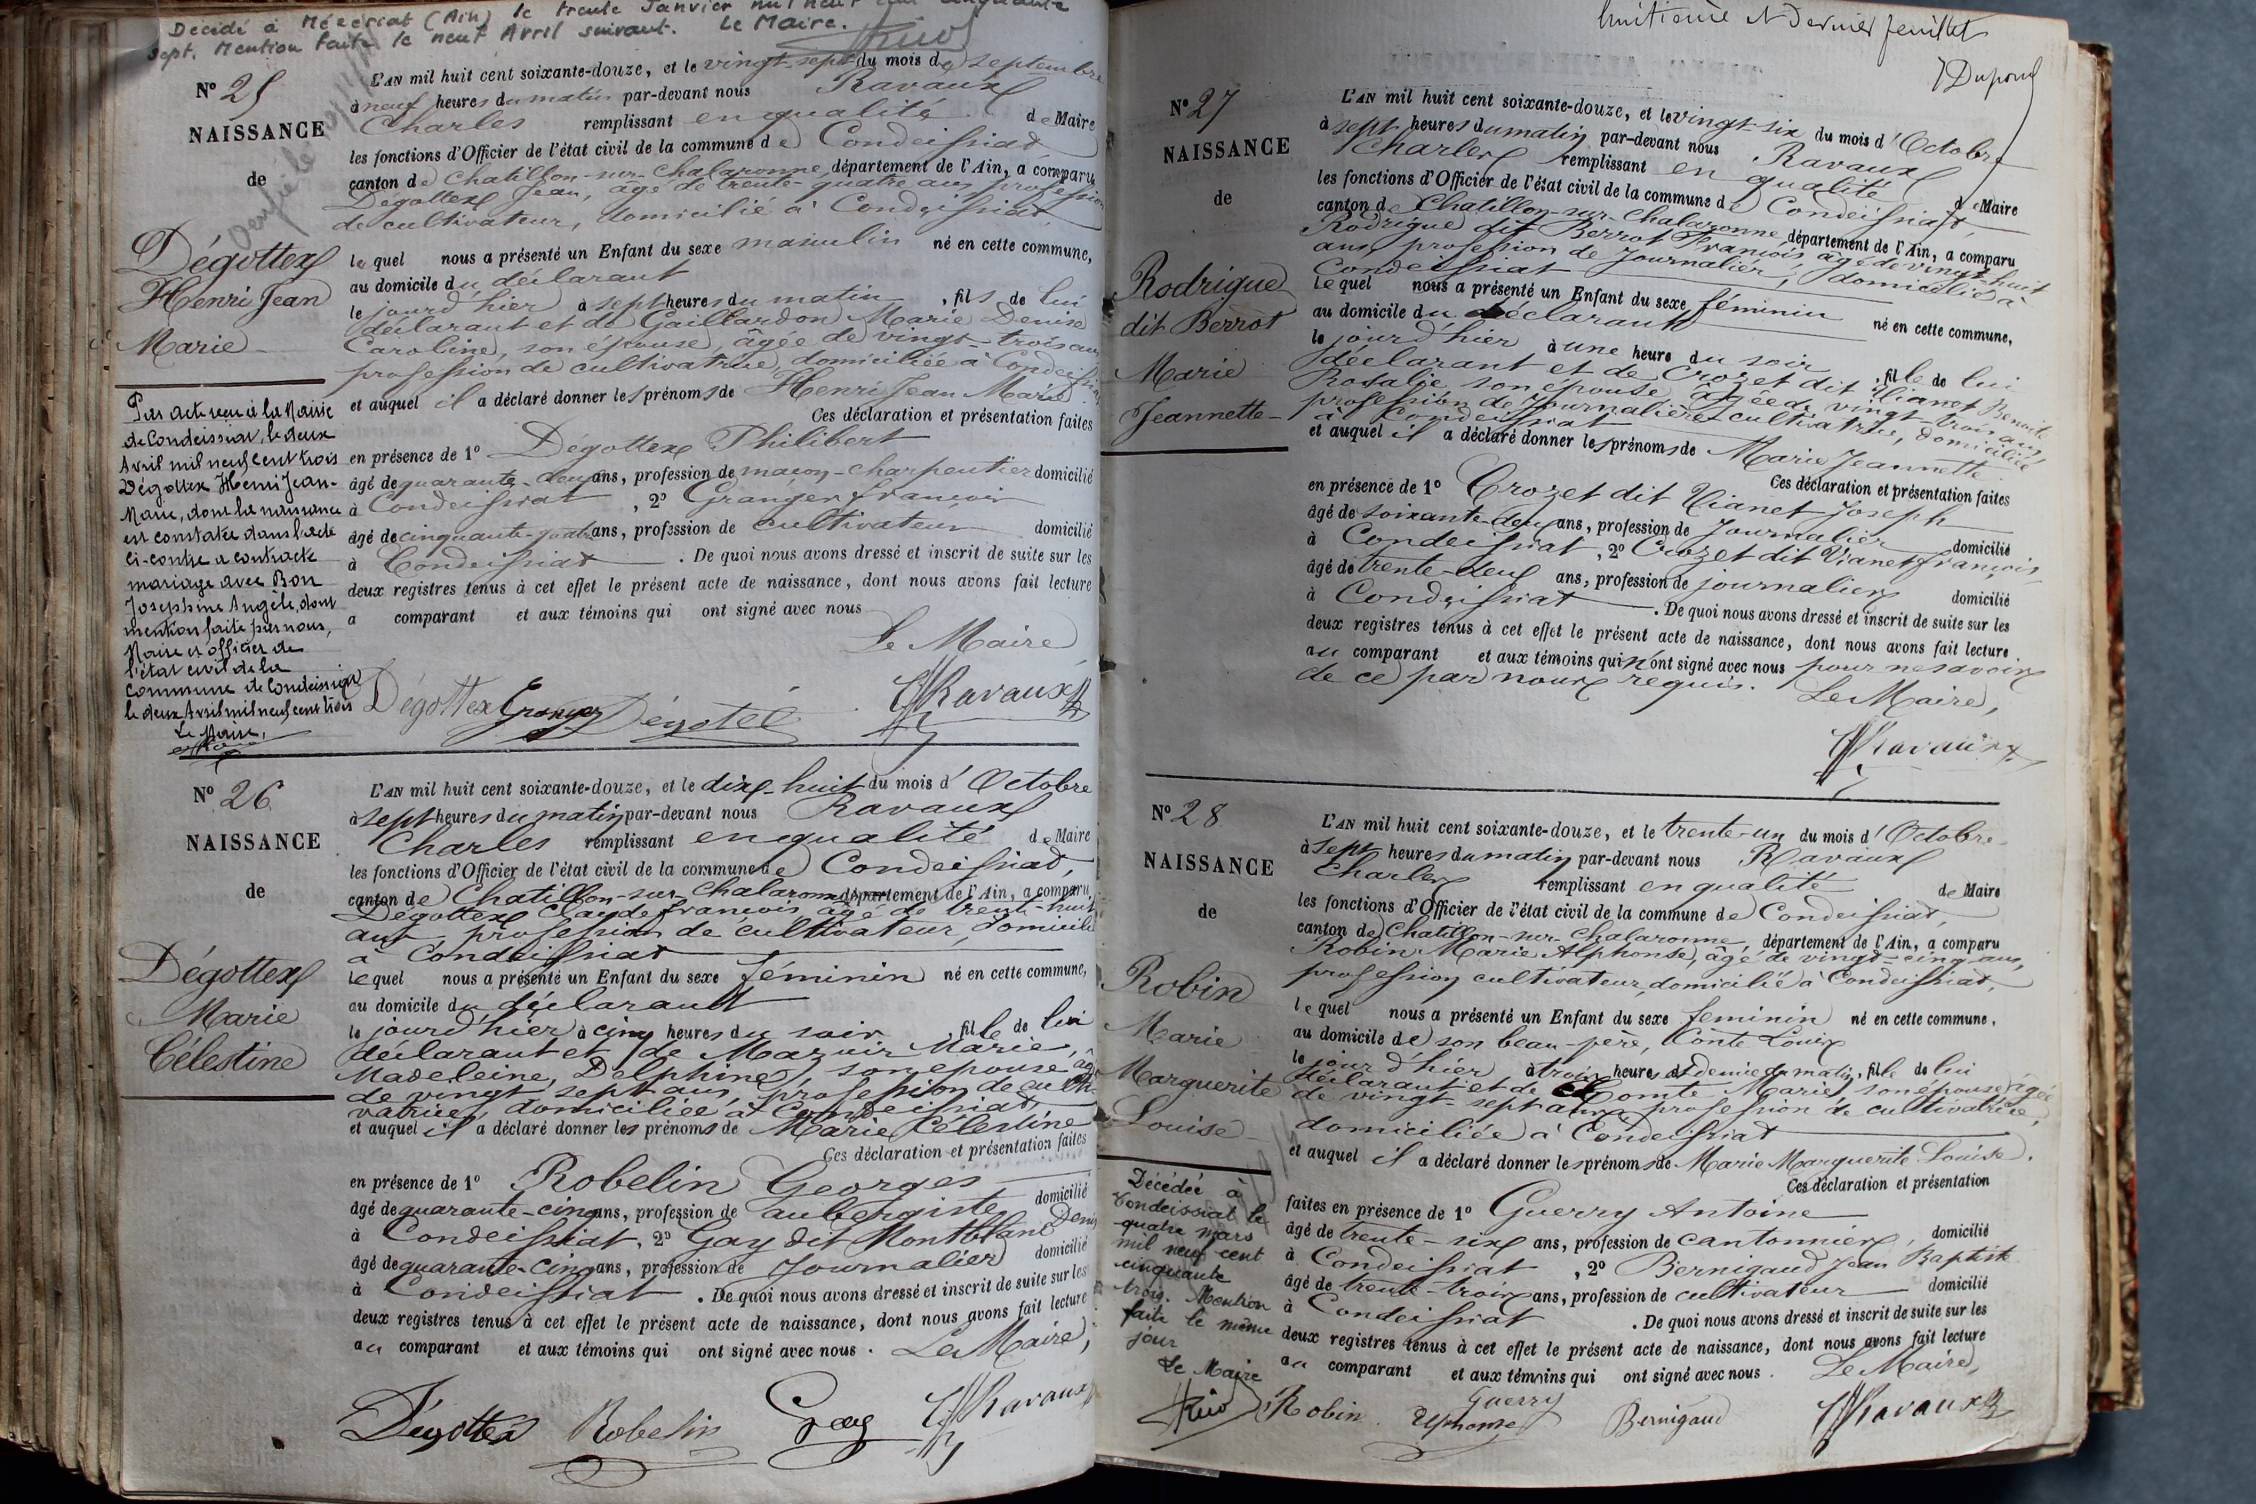 Décédé à Mézériat (Ain) le trente Janvier mil neuf cent cinquante
sept. Mention faite le neuf Avril suivant. Le Maire.
N° 25
NAISSANCE
de
Dégottex
Henri Jean
Marie
L'AN mil huit cent soixante-douze, et le vingt-sept du mois de septembre
à neuf heures du matin par-devant nous Ravaux
Charles remplissant en qualité de Maire
les fonctions d'Officier de l'état civil de la commune de Condeissiat
canton de Chatillon-sur-Chalaronne, département de l'Ain, a comparu
Dégottex Jean, âgé de trente-quatre ans profession
de cultivateur, domicilié à Condeissiat
lequel nous a présenté un Enfant du sexe masculin né en cette commune,
au domicile du déclarant
le jourd'hier à sept heures du matin, fils de lui
déclarant et de Gaillardon Marie Denise
Caroline, son épouse, âgée de vingt-trois ans
profession de cultivatrice, domiciliée à Condeissiat
et auquel il a déclaré donner les prénoms de Henri Jean Marie.
Ces déclaration et présentation faites
en présence de 1° Dégottex Philibert
âgé de quarante-deux ans, profession de maçon-charpentier domicilié
à Condeissiat, 2° Granger françois
âgé de cinquante-quatre ans, profession de cultivateur domicilié
à Condeissiat. De quoi nous avons dressé et inscrit de suite sur les
deux registres tenus à cet effet le présent acte de naissance, dont nous avons fait lecture
a comparant et aux témoins qui ont signé avec nous
Le Maire
Dégottex Granger Dégotel CRavaux
Par acte reçu à la Mairie
de Condeissiat, le deux
Avril mil neuf cent trois
Dégottex Henri Jean-
Marie, dont la naissance
est constatée dans l'acte
ci-contre a contracté
mariage avec Bon
Josephine Angèle, dont
mention faite par nous,
Maire et officier de
l'état civil de la
commune de Condeissiat
le deux Avril mil neuf cent trois
Le Maire,
N° 26
NAISSANCE
de
Dégottex
Marie
Célestine
L'AN mil huit cent soixante-douze, et le dix-huit du mois d'Octobre
à sept heures du matin par-devant nous Ravaux
Charles remplissant en qualité de Maire
les fonctions d'Officier de l'état civil de la commune de Condeissiat,
canton de Chatillon-sur-Chalaronne département de l'Ain, a comparu
Dégottex Claude françois âgé de trente-huit
ans profession de cultivateur, domicilié
à Condeissiat
lequel nous a présenté un Enfant du sexe féminin né en cette commune,
au domicile du déclarant
le jourd'hier à cinq heures du soir, fille de lui
déclarant et de Mazuir Marie,
Madeleine, Delphine, son épouse âgée
de vingt sept ans, profession de culti
vatrice, domiciliée à Condeissiat
et auquel il a déclaré donner les prénoms de Marie Célestine
Ces déclaration et présentation faites
en présence de 1° Robelin Georges
âgé de quarante-cinq ans, profession de aubergiste domicilié
à Condeissiat, 2° Gay dit Montblanc Denis
âgé de quarante-cinq ans, profession de journalier domicilié
à Condeissiat. De quoi nous avons dressé et inscrit de suite sur les
deux registres tenus à cet effet le présent acte de naissance, dont nous avons fait lecture
au comparant et aux témoins qui ont signé avec nous. Le Maire,
Dégottex Robelin Gay CRavaux
huitième et dernier feuillet
Dupond
N° 27
NAISSANCE
de
Rodrigue
dit Berrot
Marie
Jeannette
L'AN mil huit cent soixante-douze, et le vingt-six du mois d'Octobre
à sept heures du matin par-devant nous Ravaux
Charles remplissant en qualité de Maire
les fonctions d'Officier de l'état civil de la commune de Condeissiat,
canton de Chatillon-sur-Chalaronne, département de l'Ain, a comparu
Rodrigue dit Berrot François, âgé de vingt-huit
ans, profession de Journalier, domicilié à
Condeissiat
lequel nous a présenté un Enfant du sexe féminin né en cette commune,
au domicile du déclarant
le jourd'hier à une heure du soir, fille de lui
déclarant et de Crozet dit Vianet Benoite
Rosalie, son épouse, âgée de vingt-trois ans,
profession de Journalière cultivatrice, domiciliée
à Condeissiat
et auquel il a déclaré donner les prénoms de Marie Jeannette
Ces déclaration et présentation faites
en présence de 1° Crozet dit Vianet Joseph
âgé de soixante-deux ans, profession de Journalier domicilié
à Condeissiat, 2° Crozet dit Vianet françois,
âgé de trente-deux ans, profession de journalier domicilié
à Condeissiat. De quoi nous avons dressé et inscrit de suite sur les
deux registres tenus à cet effet le présent acte de naissance, dont nous avons fait lecture
au comparant et aux témoins qui n'ont signé avec nous pour ne savoir
de ce par nous requis. Le Maire,
CRavaux
N° 28
NAISSANCE
de
Robin
Marie
Marguerite
Louise
L'AN mil huit cent soixante-douze, et le trente-un du mois d'Octobre
à sept heures du matin par-devant nous Ravaux
Charles remplissant en qualité de Maire
les fonctions d'Officier de l'état civil de la commune de Condeissiat,
canton de Chatillon-sur-Chalaronne, département de l'Ain, a comparu
Robin Marie Alphonse, âgé de vingt-cinq ans,
profession cultivateur, domicilié à Condeissiat,
lequel nous a présenté un Enfant du sexe féminin né en cette commune,
au domicile de son beau-père, Comte Louis
le jour d'hier à trois heures et demie du matin, fille de lui
déclarant et de Comte Marie, son épouse âgée
de vingt-sept ans profession de cultivatrice,
domiciliée à Condeissiat
et auquel il a déclaré donner les prénoms de Marie Marguerite Louise.
Ces déclaration et présentation
faites en présence de 1° Guerry Antoine
âgé de trente-six ans, profession de cantonnier, domicilié
à Condeissiat, 2° Bernigaud Jean Baptiste
âgé de trente-trois ans, profession de cultivateur domicilié
à Condeissiat. De quoi nous avons dressé et inscrit de suite sur les
deux registres tenus à cet effet le présent acte de naissance, dont nous avons fait lecture
au comparant et aux témoins qui ont signé avec nous. Le Maire,
Robin Guerry Bernigaud CRavaux
Décédée à
Condeissiat le
quatre mars
mil neuf cent
cinquante
trois. Mention
faite le même
jour
Le Maire